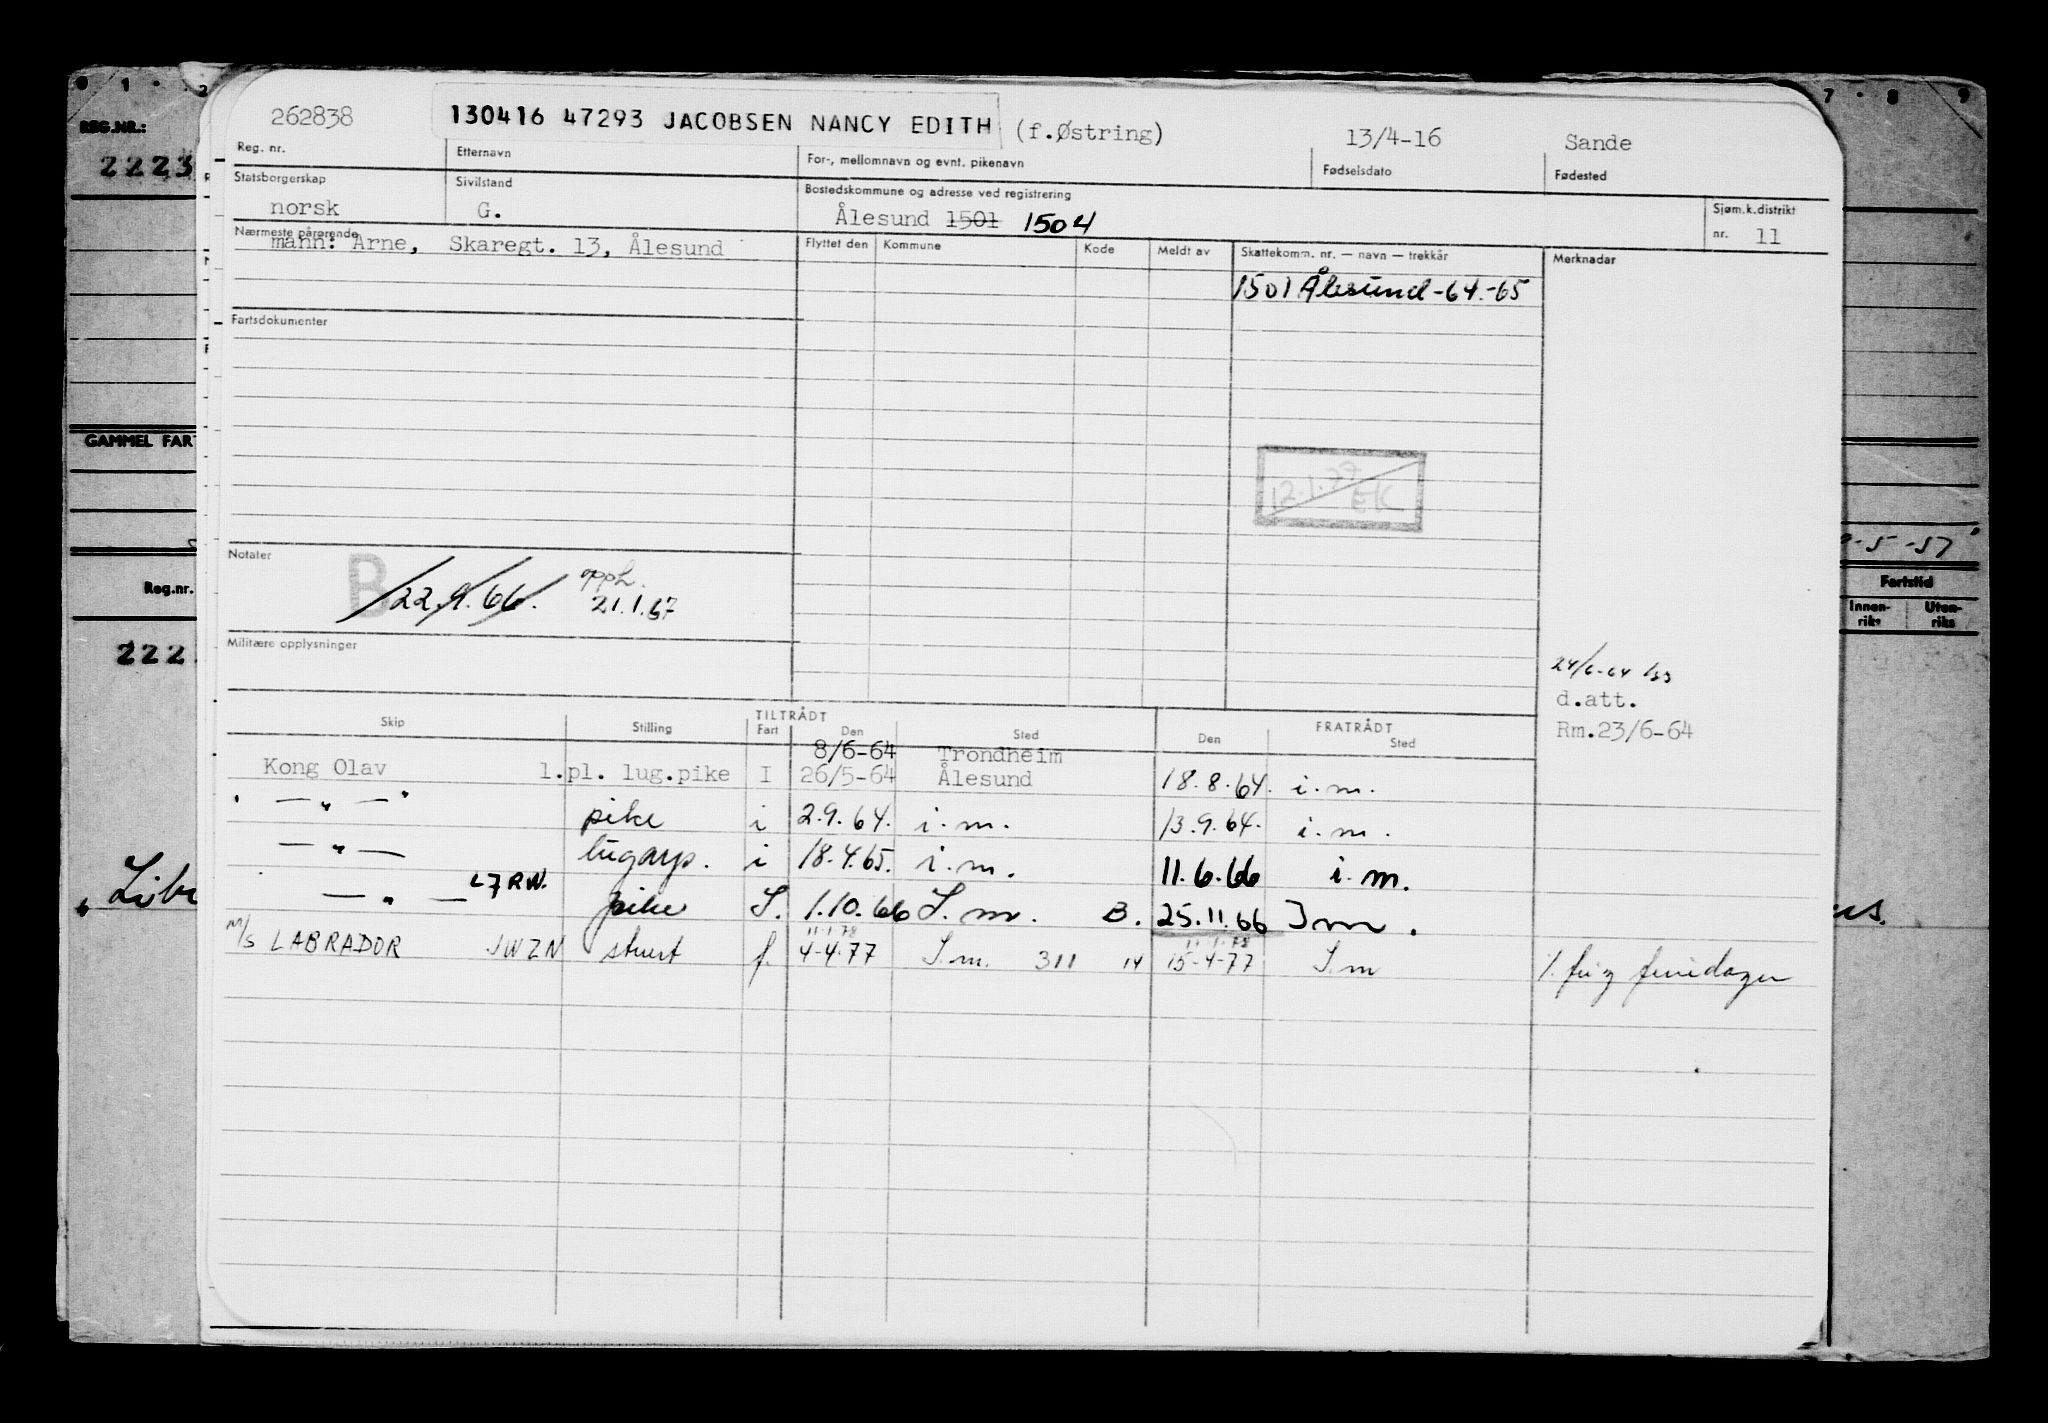 0 1 2 7 8 9
REG.NR.:
2223
GAMMEL FAR
Reg.nr.
222
-5-57
Fartstid
Innen-riks Uten-riks
262838 130416 47293 JACOBSEN NANCY EDITH (f.Østring) 13/4-16 Sande
Reg. nr. Etternavn For-, mellomnavn og evnt. pikenavn Fødselsdato Fødested
Statsborgerskap Sivilstand Bostedskommune og adresse ved registrering Sjøm.k.distrikt
norsk G. Ålesund 1501 1504 nr. 11
Nærmeste pårørende Flyttet den Kommune Kode Meldt av Skattekomm. nr. — navn — trekkår Merknader
mann: Arne, Skaregt. 13, Ålesund
1501 Ålesund-64.-65
Fartsdokumenter
12.1.77 EK
Notater
B 22.9.66. opph. 21.1.67
Militære opplysninger
24/6-64
d.att.
Rm.23/6-64
Skip Stilling TILTRÅDT Fart Den Sted FRATRÅDT Den Sted
8/6-64 Trondheim
Kong Olav 1.pl. lug.pike I 26/5-64 Ålesund 18.8.64. i.m.
— " — pike i 2.9.64. i.m. 13.9.64. i.m.
— " — lugarp. i 18.4.65. i.m. 11.6.66 i.m.
— " — L7RW. pike I. 1.10.66 I.m. B. 25.11.66 Im.
11.1.78 11.1.78
M/S LABRADOR JWZN stuert f. 4-4-77 I.m. 311 14 15-4-77 I.m